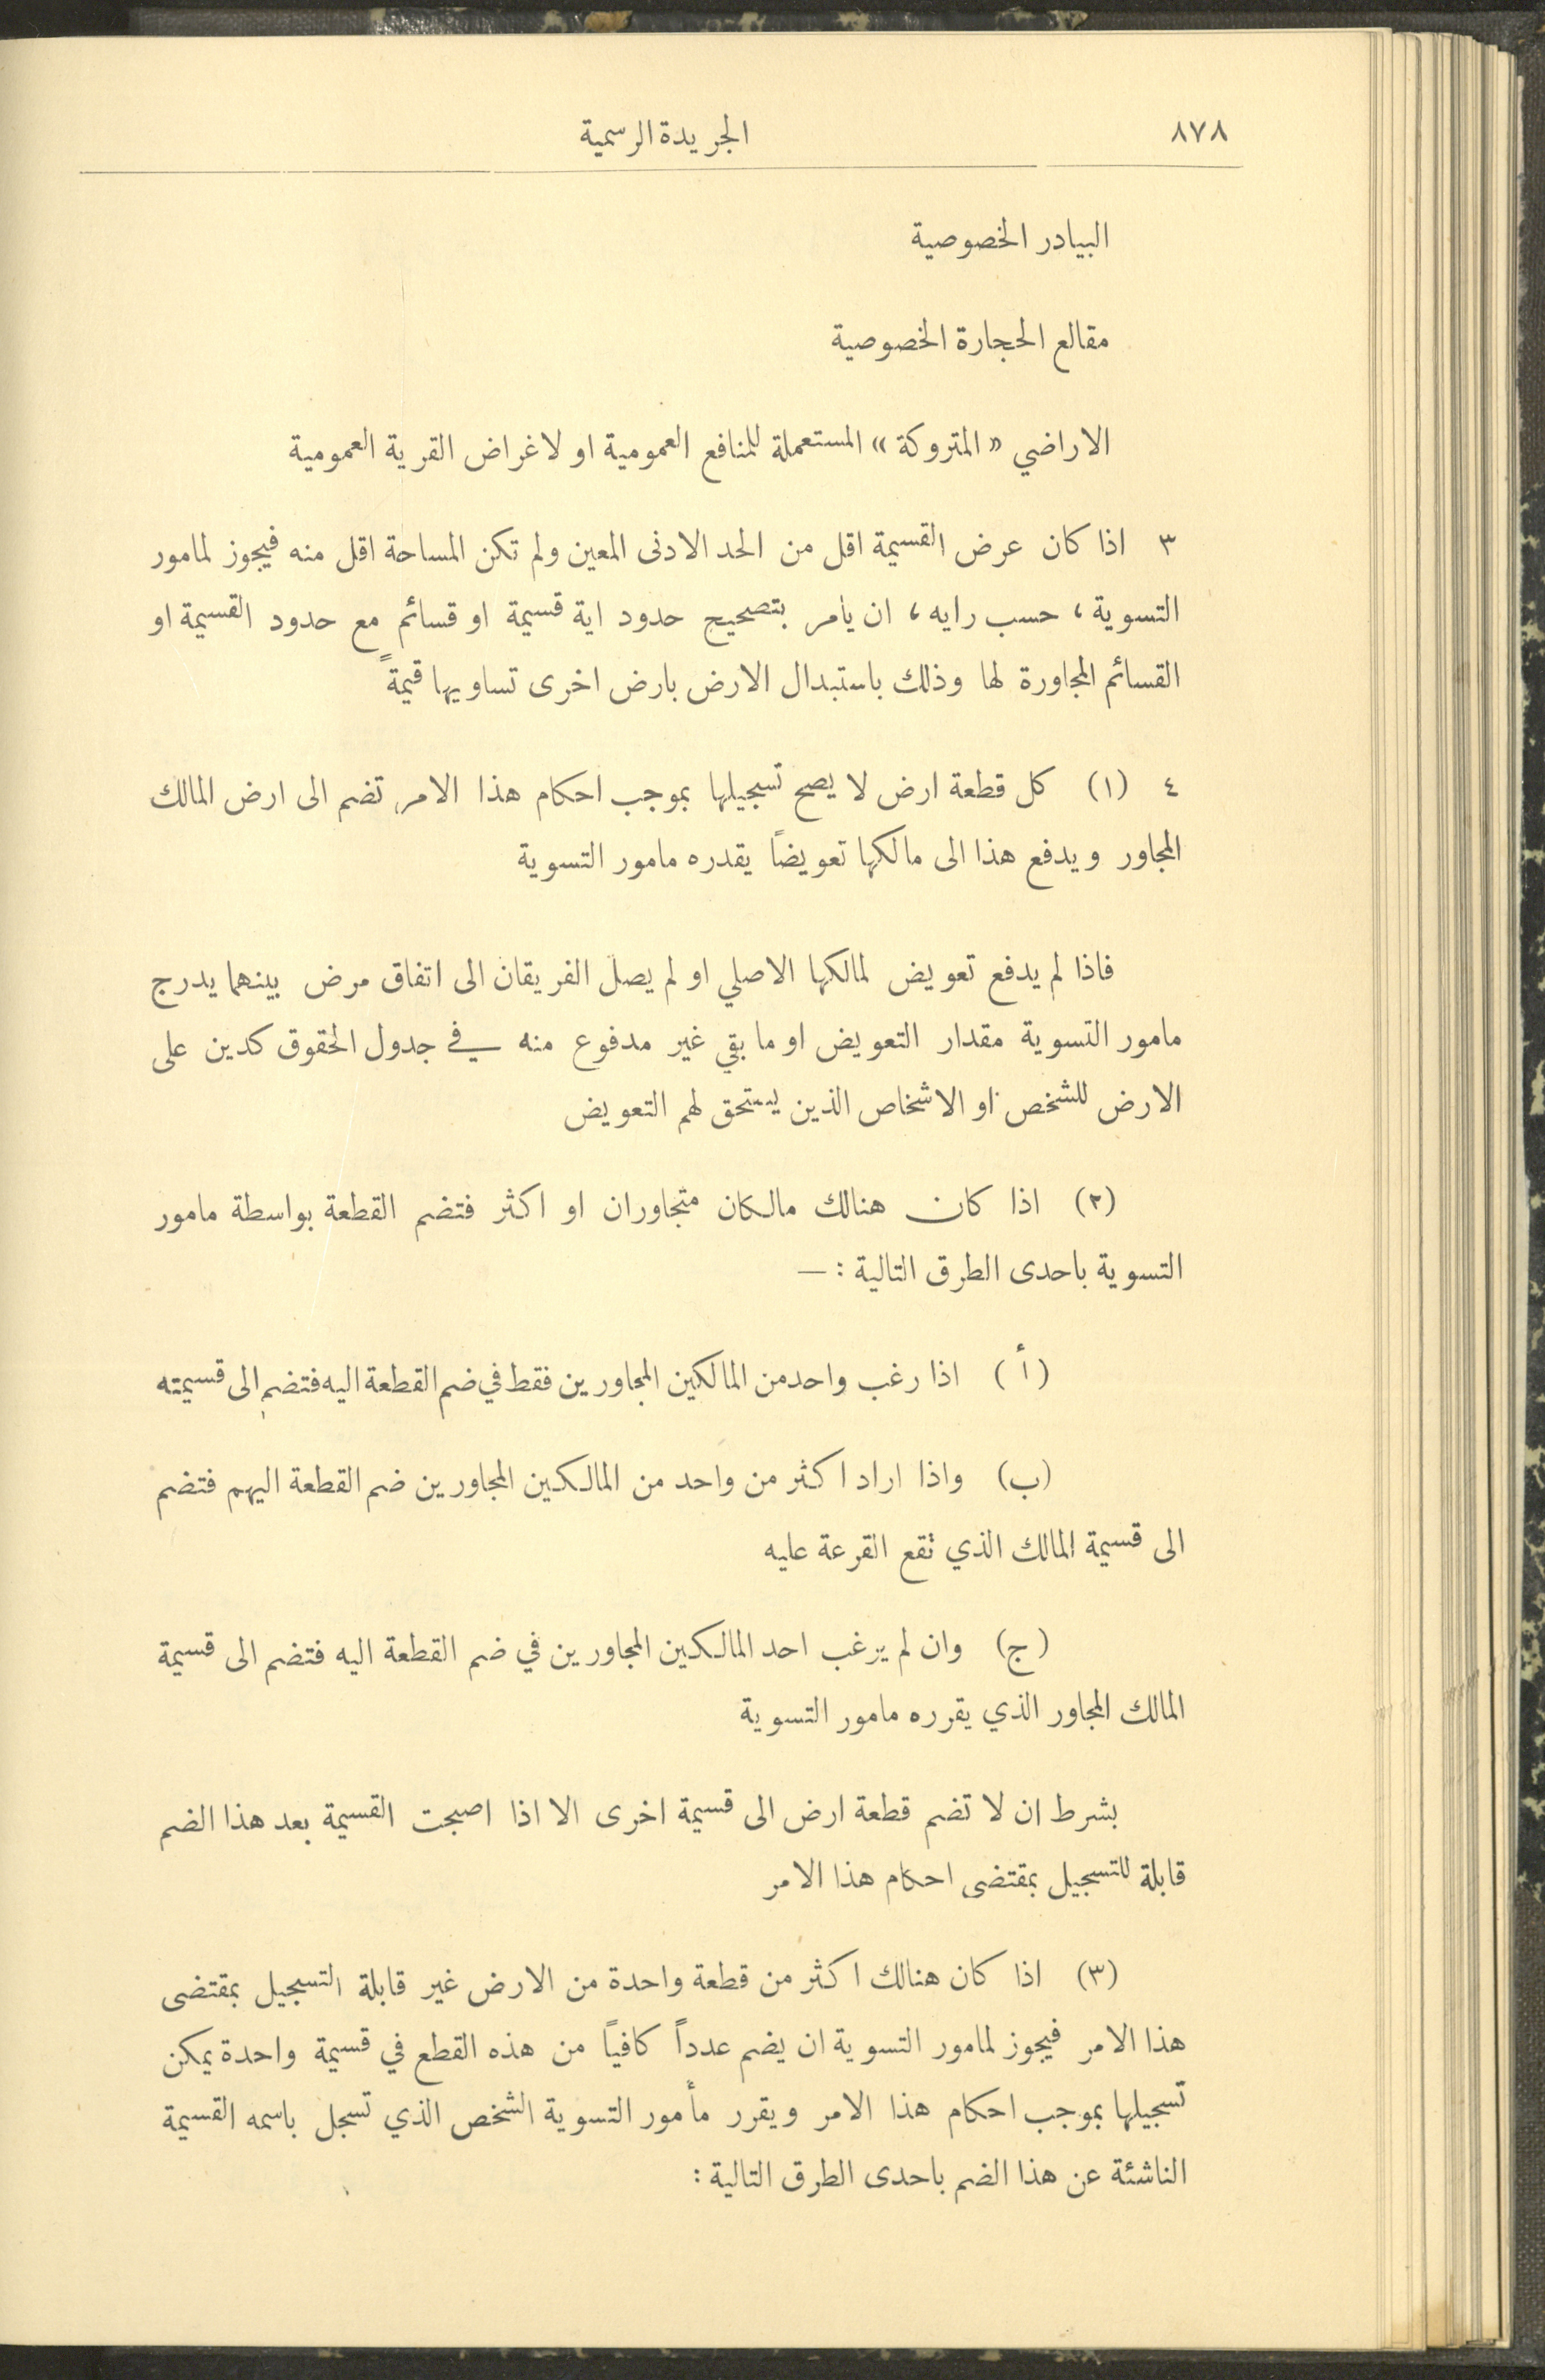 ٨٧٨
الجريدة الرسمية
البيادر الخصوصية
مقالع الحجارة الخصوصية
الاراضي «المتروكة» المستعملة للمنافع العمومية او لاغراض القرية العمومية
٣ اذا كان عرض القسيمة اقل من الحد الادنى المعين ولم تكن المساحة اقل منه فيجوز لمامور
التسوية، حسب رايه، ان يامر بتصحيح حدود اية قسيمة او قسائم مع حدود القسيمة او
القسائم المجاورة لها وذلك باستبدال الارض بارض اخرى تساويها قيمةً
٤ (١) كل قطعة ارض لا يصح تسجيلها بموجب احكام هذا الامر تضم الى ارض المالك
المجاور ويدفع هذا الى مالكها تعويضاً يقدره مامور التسوية
فاذا لم يدفع تعويض لمالكها الاصلي او لم يصل الفريقان الى اتفاق مرض بينهما يدرج
مامور التسوية مقدار التعويض او ما بقي غير مدفوع منه في جدول الحقوق كدين على
الارض للشخص او الاشخاص الذين يستحق لهم التعويض
(٢) اذا كان هنالك مالكان متجاوران او اكثر فتضم القطعة بواسطة مامور
التسوية باحدى الطرق التالية : —
(أ) اذا رغب واحد من المالكين المجاورين فقط في ضم القطعة اليه فتضم الى قسيمته
(ب) واذا اراد اكثر من واحد من المالكين المجاورين ضم القطعة اليهم فتضم
الى قسيمة المالك الذي تقع القرعة عليه
(ج) وان لم يرغب احد المالكين المجاورين في ضم القطعة اليه فتضم الى قسيمة
المالك المجاور الذي يقرره مامور التسوية
بشرط ان لا تضم قطعة ارض الى قسيمة اخرى الا اذا اصبحت القسيمة بعد هذا الضم
قابلة للتسجيل بمقتضى احكام هذا الامر
(٣) اذا كان هنالك اكثر من قطعة واحدة من الارض غير قابلة التسجيل بمقتضى
هذا الامر فيجوز لمامور التسوية ان يضم عدداً كافياً من هذه القطع في قسيمة واحدة يمكن
تسجيلها بموجب احكام هذا الامر ويقرر مأمور التسوية الشخص الذي تسجل باسمه القسيمة
الناشئة عن هذا الضم باحدى الطرق التالية :